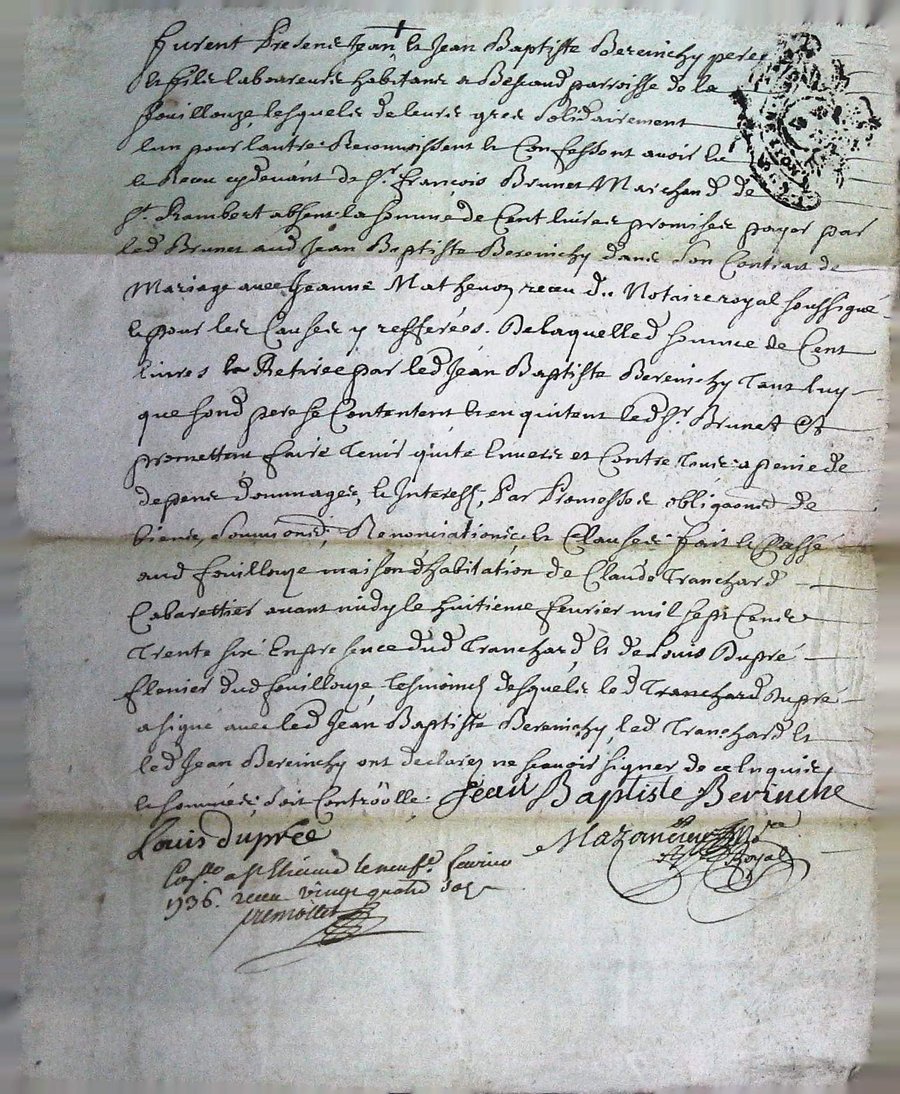 furent Presens Jean, et Jean Baptiste Bereinchy pere
et fils laboureurs habitans a Bessard parroisse de la
fouillouze, lesquels de leurs gres solidairement
lun pour lautre Reconnoissent et Confessent avoir eu
et Receu cydevant de sr. françois Brunet Marchand de
st. Rambert absent la somme de Cent livres promises payer par
led Brunet aud Jean Baptiste Bereinchy dans son Contrat de
Mariage avec Jeanne Mathevon receu du Notaire royal soussigné
et pour les Causes y refferées. De laquelle d somme de Cent
livres Retirée par led Jean Baptiste Bereinchy tant luy
que sond pere se Contentent et en quitent led sr. Brunet Et
promettent faire tenir quite envers et Contre tous a peine de
depens dommages, et Interests, Par Promesses obligaons de
biens, soumions, Renonciations, et Clauses fait et Passé
aud fouillouze maison d'habitation de Claude Tranchard
Cabarettier avant midy le huitieme fevrier mil sept Cents
Trente six En presence dud Tranchard, et de Louis Dupré
dud fouillouze tesmoins desquels led Dupré
a signé avec led Jean Baptiste Bereinchy, led Tranchard et
led Jean Bereinchy ont declarez ne sçavoir signer de ce Enquis
et sommés, soit Controolle: Jean Baptiste Berinche
Louis dupree
Royal
a st Etienne le neufe. fevrier
1736. receu vingt quatre sols